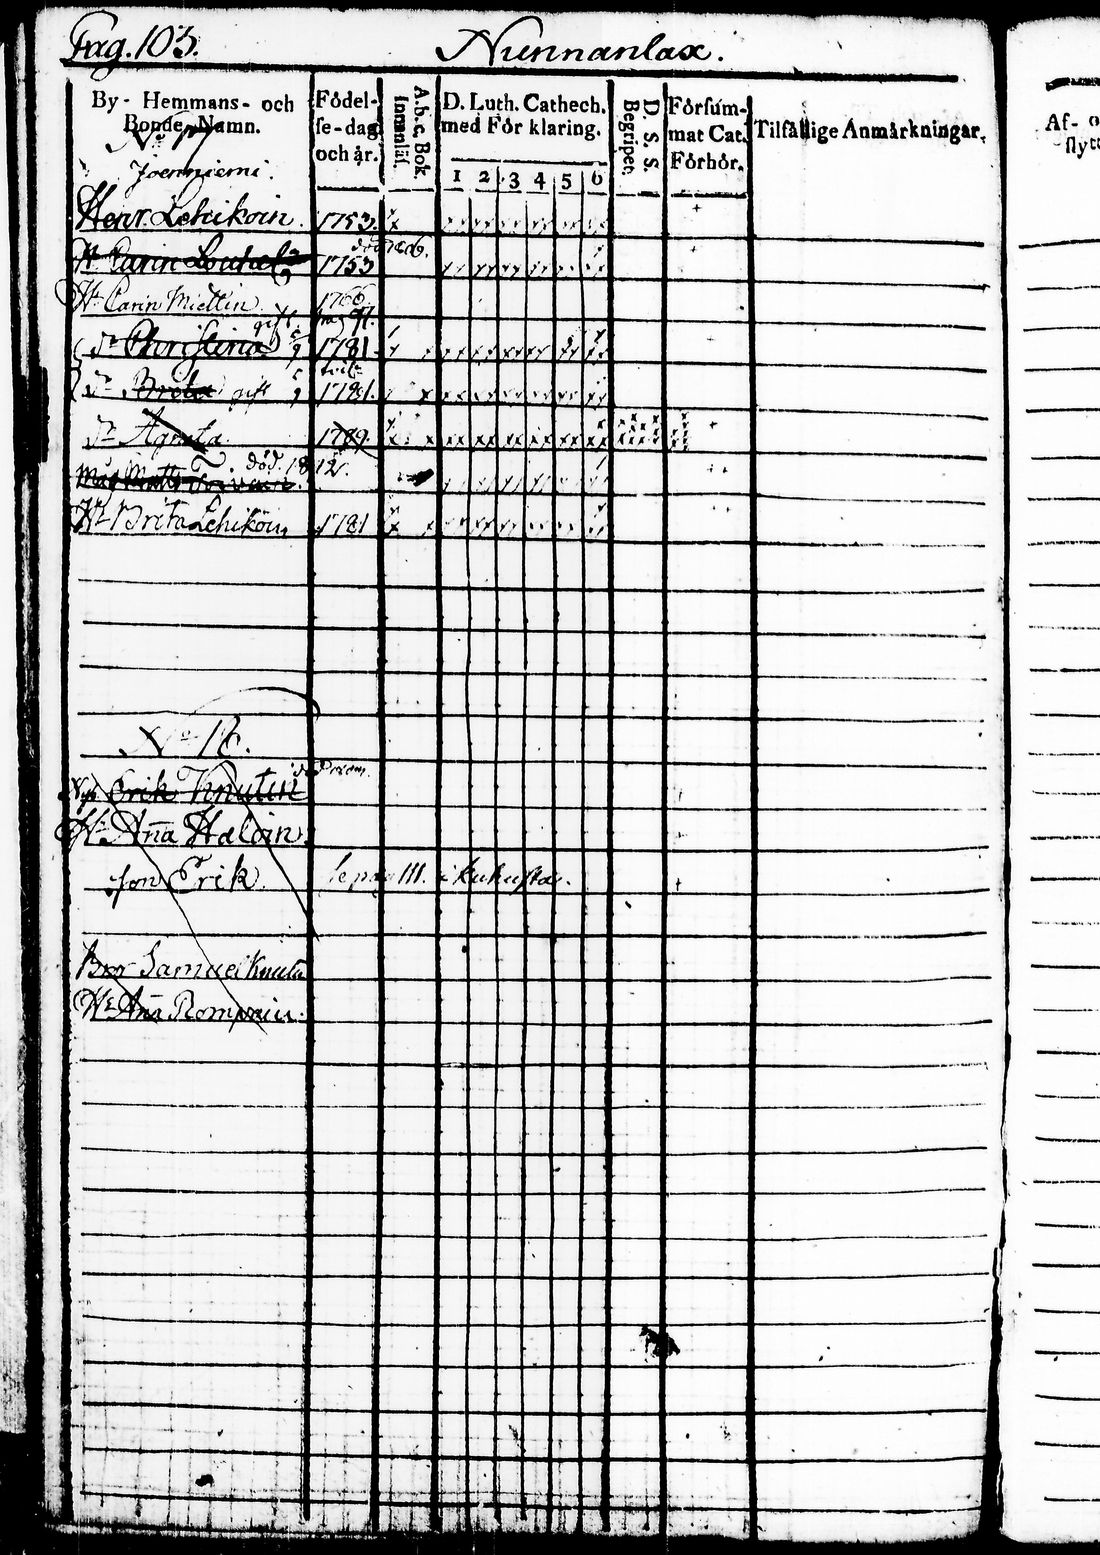 Pag. 103.
Nunnanlax.
By- Hemmans- och
Bonde-Namn.
Födel-
se-dag
och år.
A.b.c. Bok
Innanläs.
D. Luth. Cathech.
med För klaring.
1 2 3 4 5 6
D. S. S.
Begripet.
Försum-
mat Cat.
Förhör.
Tilfällige Anmärkningar.
Af- o
flytt
No 17
Joenniemi.
Henr. Lehikoin 1753.
H. Carin 1753
H. Carin Miettin 1766.
pag 91.
Dr Christina gift 1781
Dr Breta gift 1781.
Dr Agneta 1789.
Måg Matts död. 1812.
H. Brita Lehikoin 1781
No 18.
Erik Knutin
H. Aña Haloin
Son Erik. Se pag 111. i Kukusta.
Bror Samuel Knutin
H. Aña Rompain.